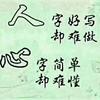 人 字好写
却难做
心 字简单
却难懂